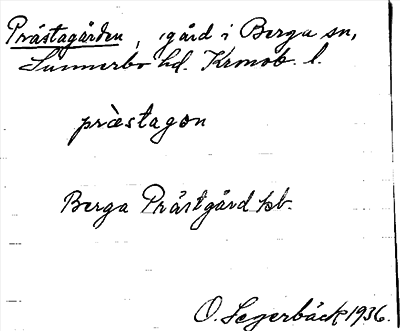 Prästagården, gård i Berga sn,
Sunnerbo hd. Kronob. l.
præ̀stagon
Berga Prästgård kb.
O. Segerbäck 1936.